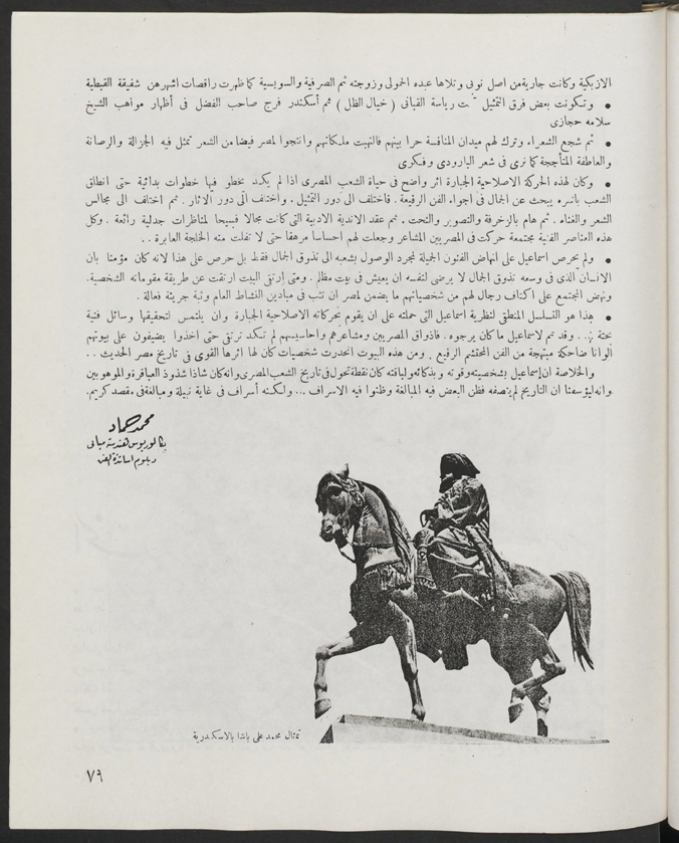 الازبكية وكانت جارية من اصل نوبى وتلاها عبده الحمولى وزوجته ثم الصرفية والسويسية كما ظهرت راقصات اشهرهن شفيقة القبطية
• وتكونت بعض فرق التمثيل تحت رياسة القبانى ( خيال الظل ) ثم أسكندر فرج صاحب الفضل فى أظهار مواهب الشيخ
سلامه حجازى
• ثم شجع الشعراء وترك لهم ميدان المنافسة حرا بينهم فالتهبت ملكاتهم وانتجوا لمصر فيضا من الشعر تمثل فيه الجزالة والرصانة
والعاطفة المتأججة كما نرى فى شعر البارودى وفكرى
• وكان لهذه الحركة الاصلاحية الجبارة اثر واضح فى حياة الشعب المصرى اذا لم يكد يخطو فيها خطوات بدائية حتى انطلق
الشعب باسره يبحث عن الجمال فى اجواء الفن الرفيعة . فاختلف الى دور التمثيل . واختلف الى دور الاثار . ثم اختلف الى مجالس
الشعر والغناء . ثم هام بالزخرفة والتصوير والنحت . ثم عقد الاندية الادبية التى كانت مجالا فسيحا لمناظرات جدلية رائعة . وكل
هذه العناصر الفنية مجتمعة حركت فى المصريين المشاعر وجعلت لهم احساسا مرهفا حتى لا تفلت منه الخلجة العابرة . .
• ولم يحرص اسماعيل على انهاض الفنون الجميلة لمجرد الوصول بشعبه الى تذوق الجمال فقط بل حرص على هذا لانه كان مؤمنا بان
الانسان الذى فى وسعه تذوق الجمال لا يرضى لنفسه ان يعيش فى بيت مظلم . ومتى ارتقى البيت ارتقت عن طريقة مقوماته الشخصية.
ونهض المجتمع على اكتاف رجال لهم من شخصياتهم ما يضمن لمصر ان تثب فى ميادين النشاط العام وثبة جريئة فعالة .
• هذا هو التسلسل المنطقى لنظرية اسماعيل التى حملته على ان يقوم بحركاته الاصلاحية الجبارة وان يلتمس لتحقيقها وسائل فنية
بحتة . . وقد تم لاسماعيل ماكان يرجوه . فاذواق المصريين ومشاعرهم واحاسيسهم لم تكد ترتقى حتى اخذوا يضيفون على بيوتهم
ألوانا ضاحكة مبتهجة من الفن المحتشم الرفيع . ومن هذه البيوت انحدرت شخصيات كان لها اثرها القوى فى تاريخ مصر الحديث . .
والخلاصة ان إسماعيل بشخصيته وقوته وبذكائه ولباقته كان نقطة تحول فى تاريخ الشعب المصرى وانه كان شاذا شذوذ العباقرة والموهوبين
وانه ليؤسفنا ان التاريخ لم ينصفه فظن البعض فيه المبالغة وظنوا فيه الاسراف ... ولكنه أسراف فى غاية نبيلة ومبالغة فى مقصد كريم.
محمد حماد
بكالوريوس هندسة مبانى
دبلوم اساتذة الفن
تمثال محمد على باشا بالاسكندرية
٧٩